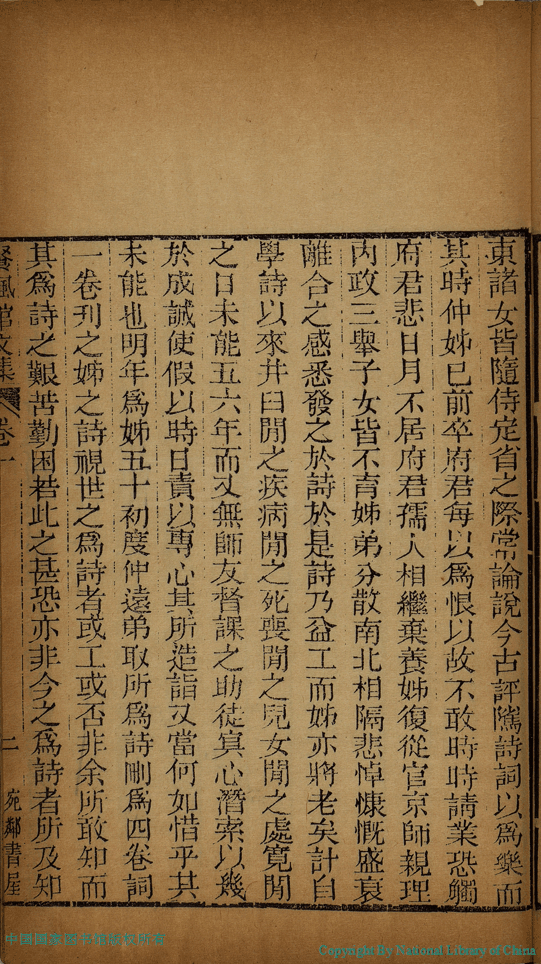 東諸女皆隨侍定省之際常論說今古評隲詩詞以爲樂而
其時仲姊已前卒府君每以爲恨以故不敢時時請業恐觸
府君悲日月不居府君孺人相繼棄養姊復從官京師親理
內政三舉子女皆不育姊弟分散南北相隔悲悼慷慨盛衰
離合之感悉發之於詩於是詩乃益工而姊亦將老矣計自
學詩以來井臼閒之疾病閒之死喪閒之兒女閒之處寛閒
之日未能五六年而又無師友督課之助徒冥心潛索以幾
於成誠使假以時日責以專心其所造詣又當何如惜乎其
未能也明年爲姊五十初度仲遠弟取所爲詩刪爲四卷詞
一卷刋之姊之詩視世之爲詩者或工或否非余所敢知而
其爲詩之艱苦勤困若此之甚恐亦非今之爲詩者所及知
餐楓館文集 卷一 二 宛鄰書屋
中国国家图书馆版权所有
Copyright By National Library of China